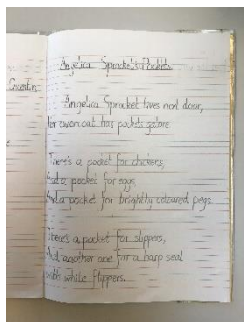 Angelica Sprocket's Pockets
Angelica Sprocket lives next door,
Her overcoat has pockets galore
There's a pocket for chickens,
And a pocket for eggs,
And a pocket for brightly coloured pegs
There's a pocket for slippers,
And another one for a harp seal
with white flippers.